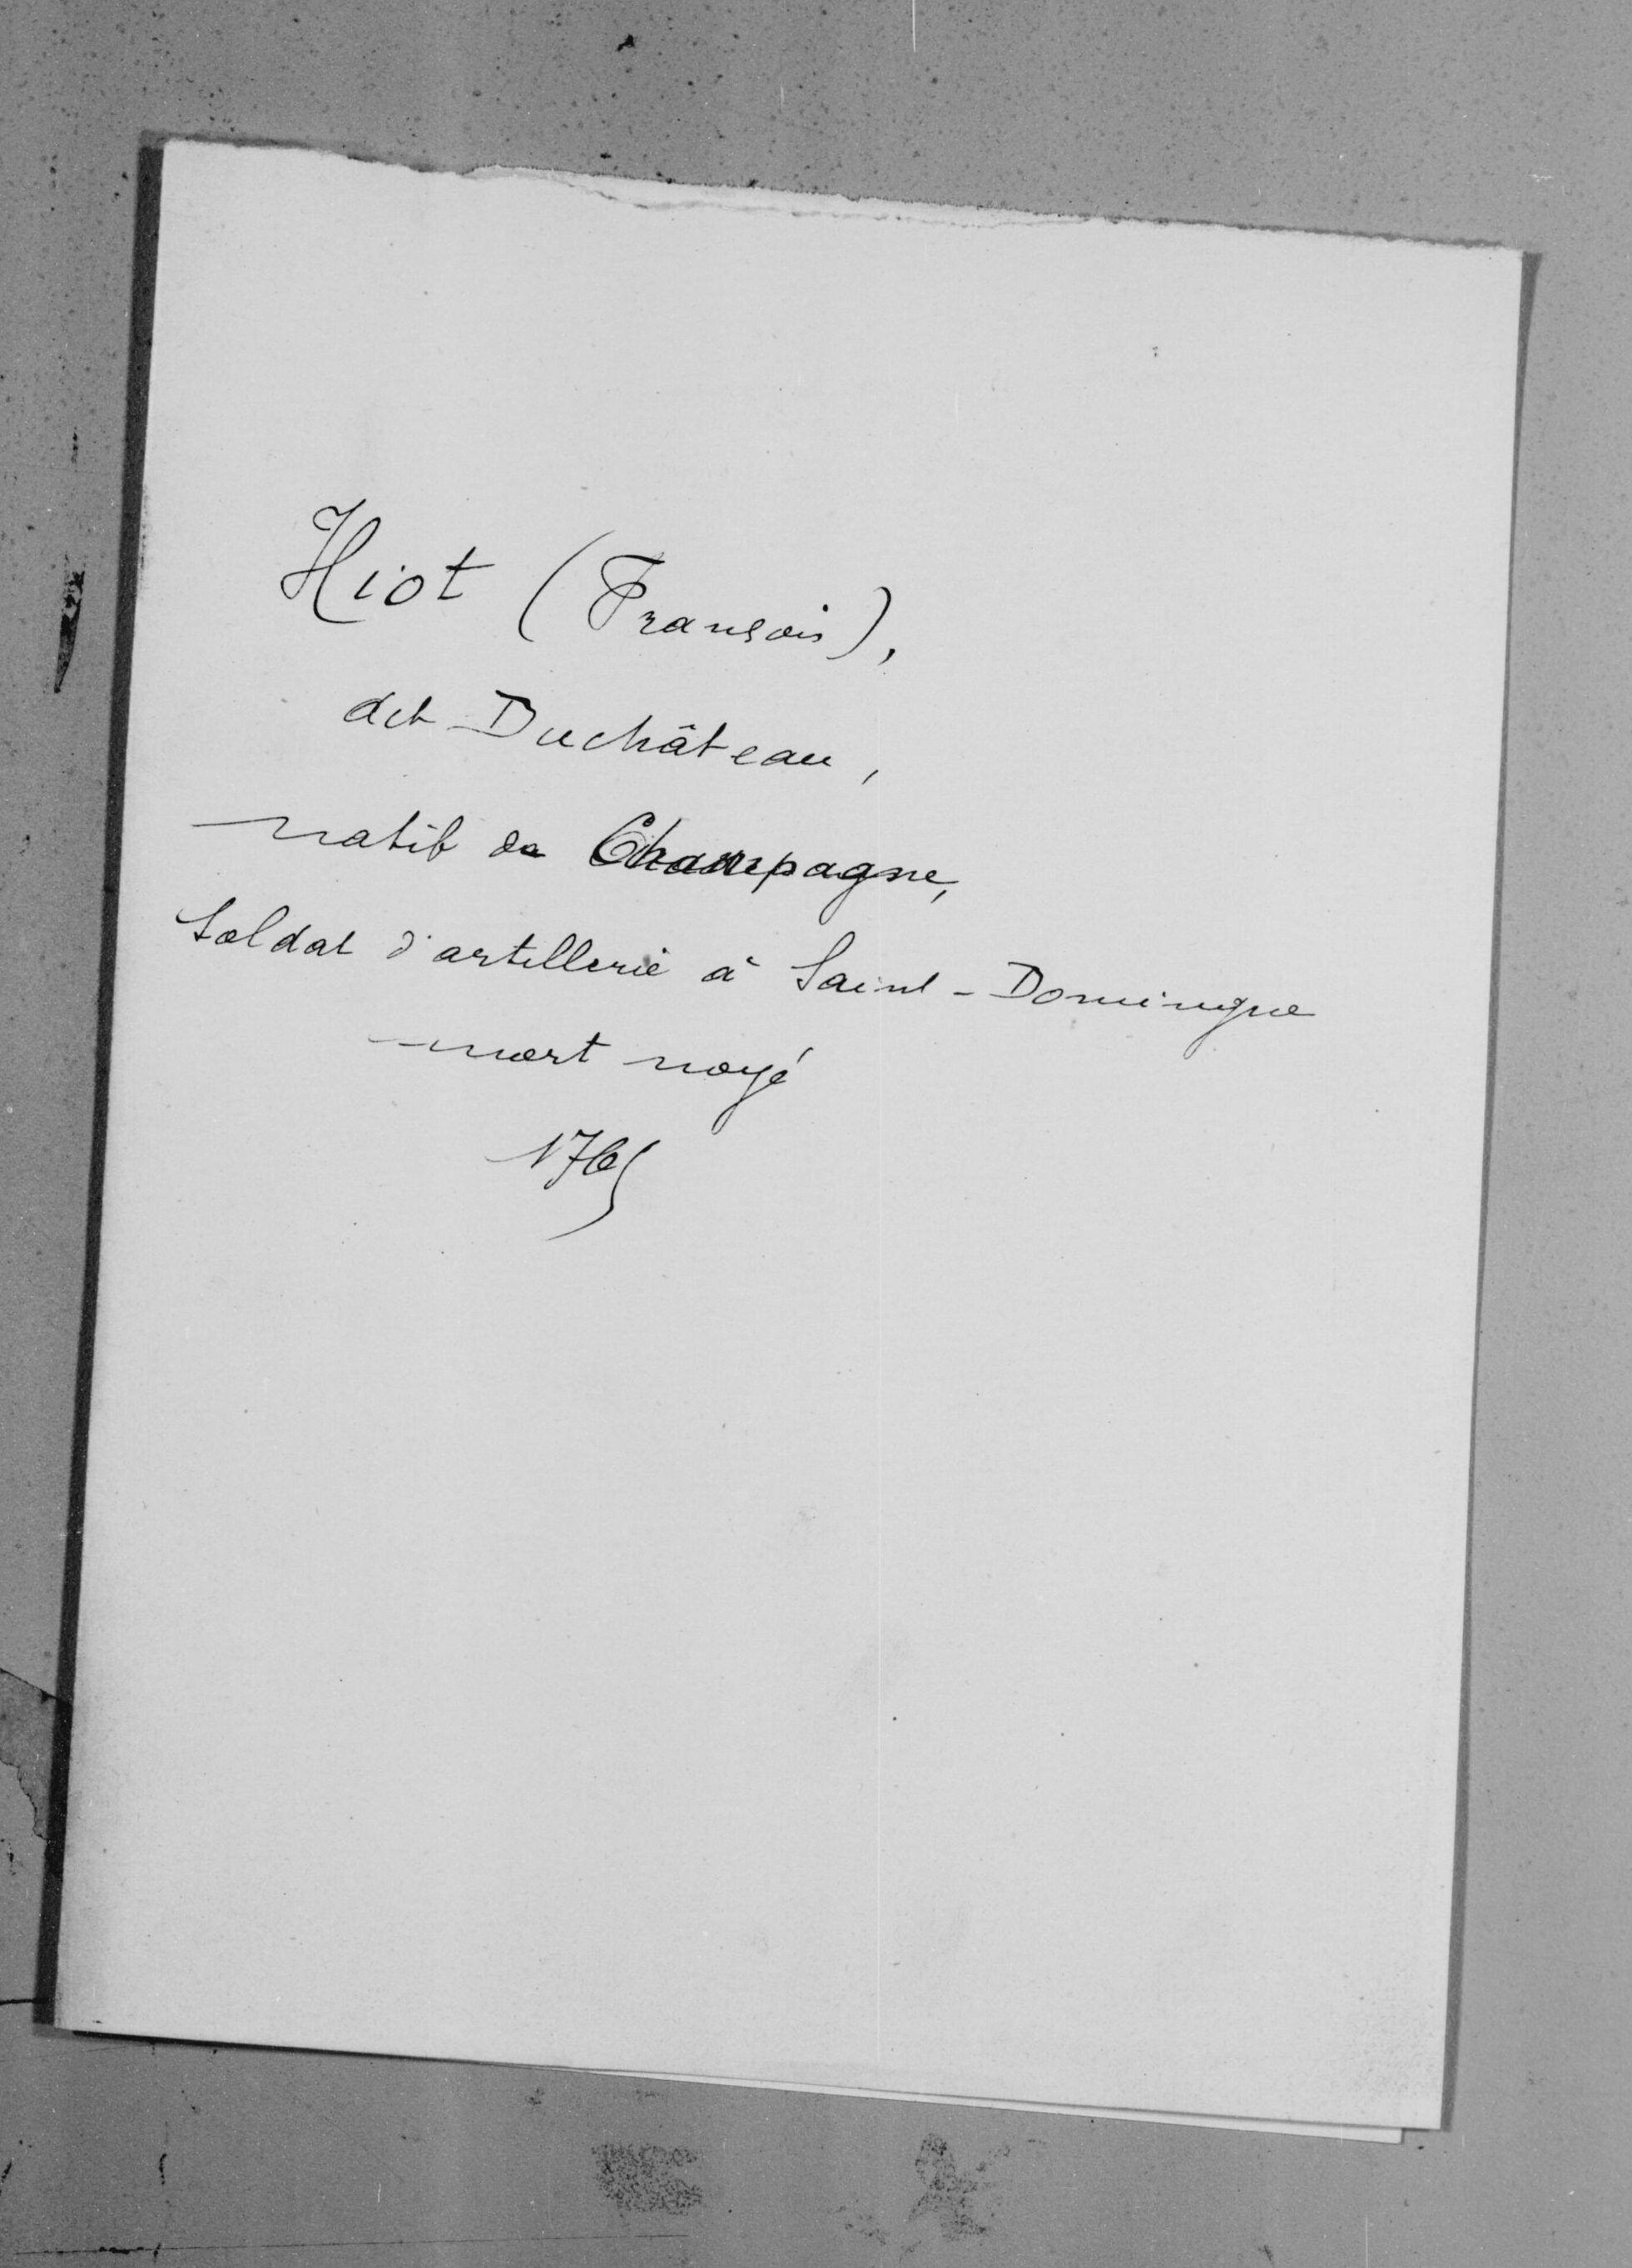 Hiot (François),
dit Duchâteau,
natif de Champagne,
Soldat d'artillerie à Saint-Domingue
mort noyé
1765